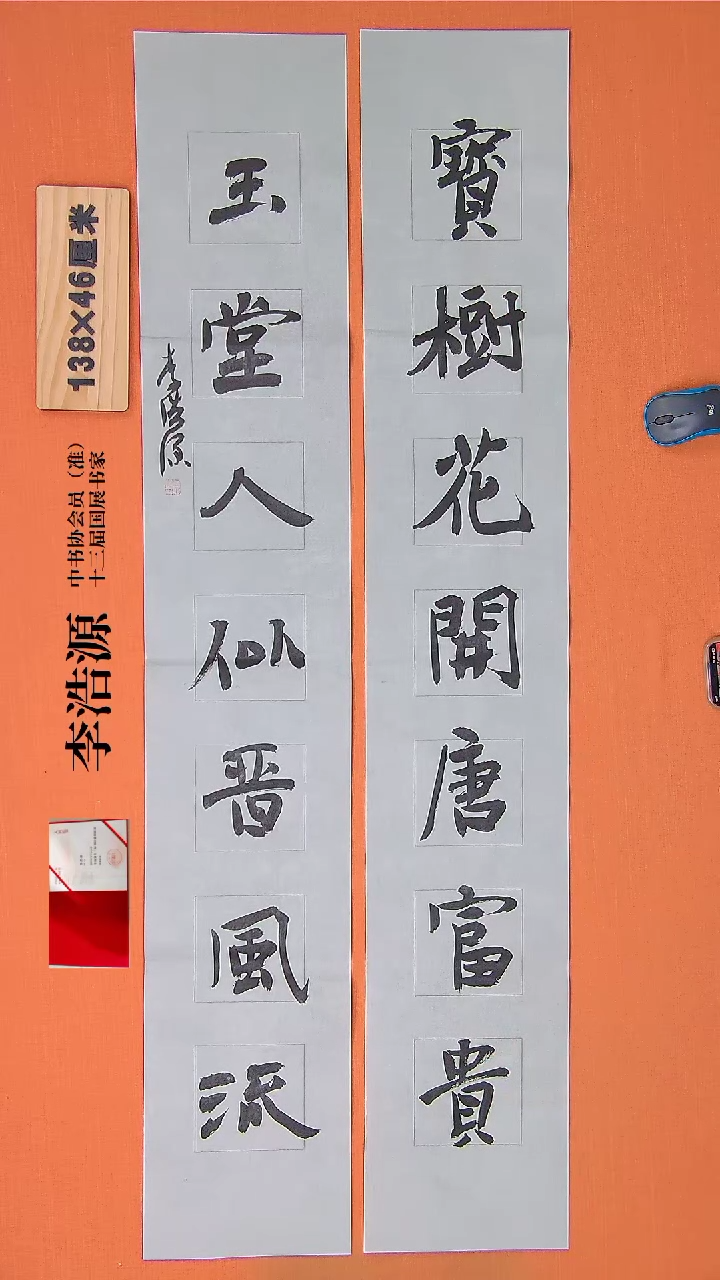 寶樹花開唐富貴
玉堂人似晋風派
李浩源
138×46厘米
中书协会员（准）
十三届国展书家
李浩源